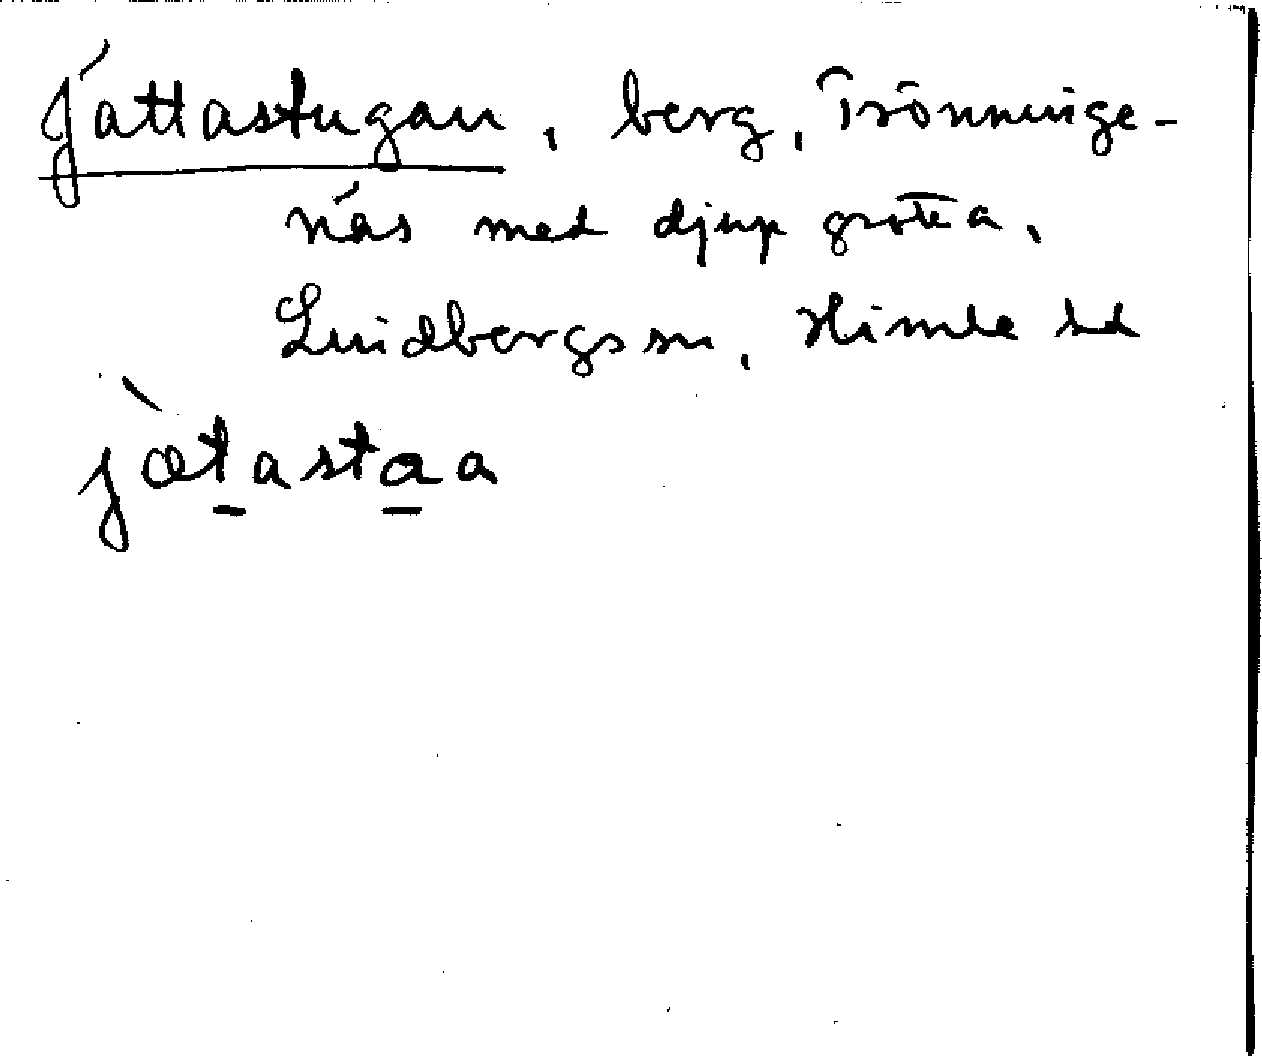 Jättastugan, berg, Trönninge-
näs med djup grotta,
Lindbergs sn, Himle hd
jætastaa